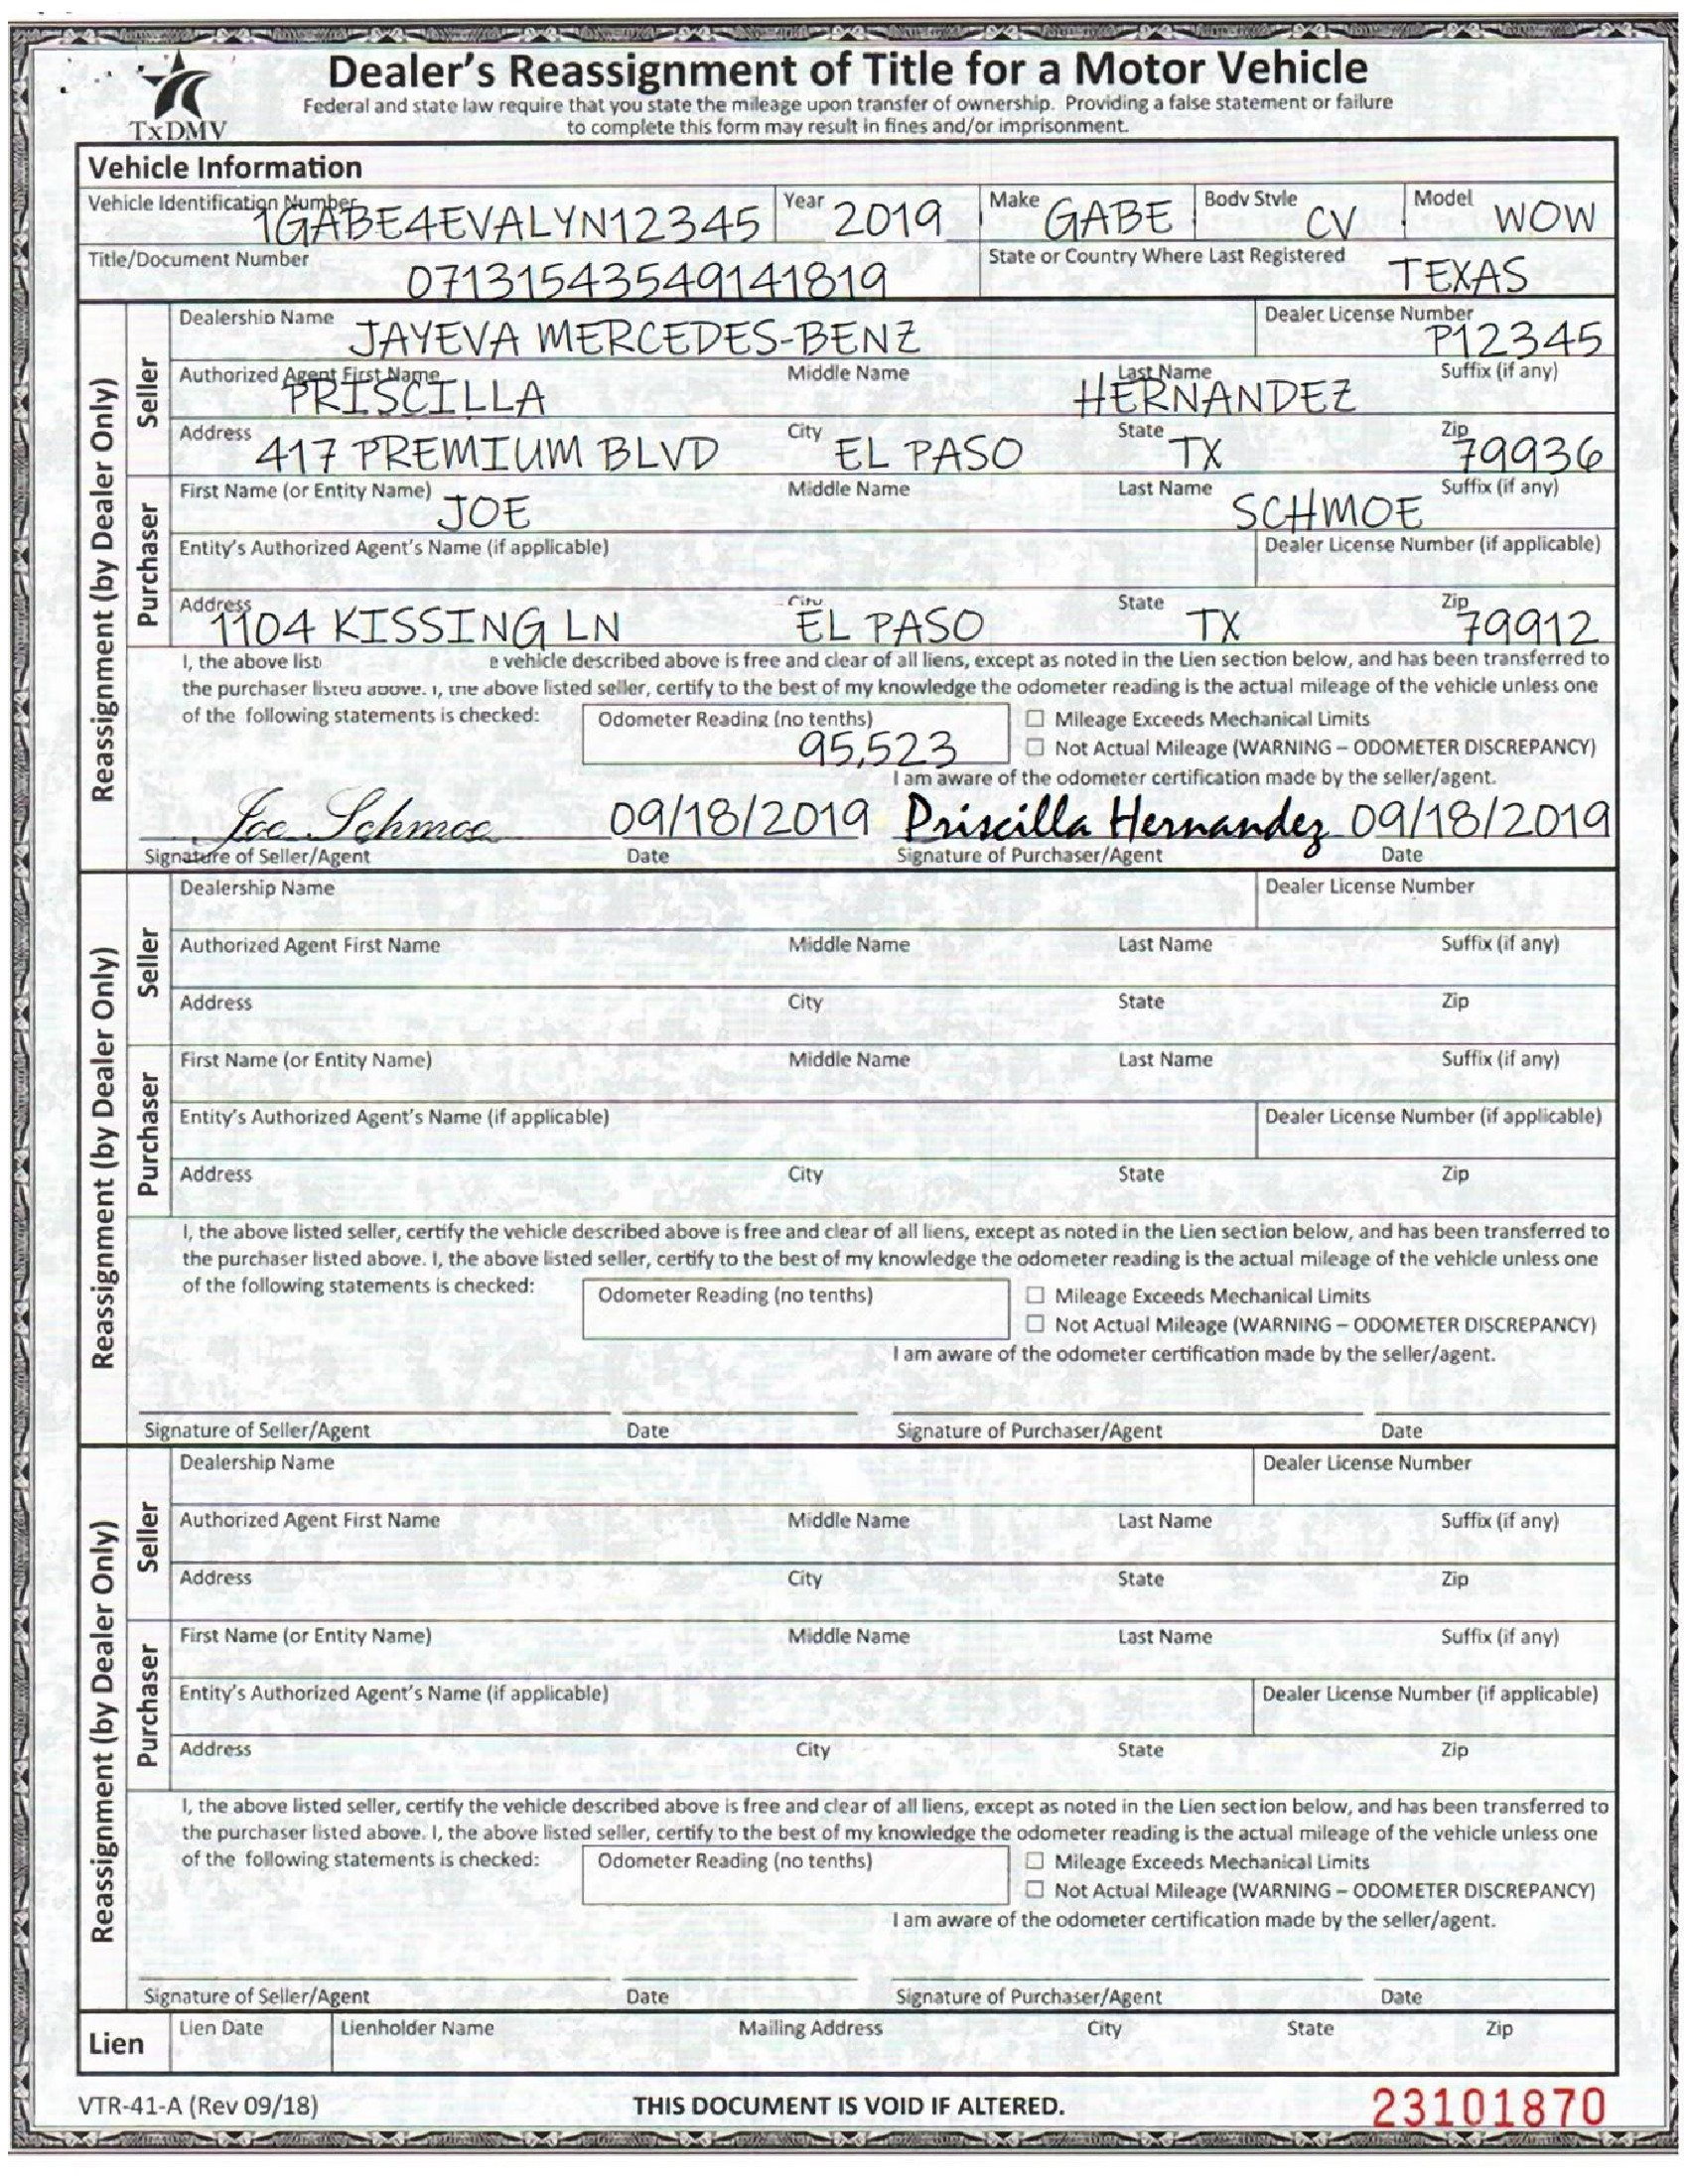 Dealer's Reassignment of Title for a Motor Vehicle
Federal and state law require that you state the mileage upon transfer of ownership. Providing a false statement or failure
to complete this form may result in fines and/or imprisonment.
TxDMV
Vehicle Information
Vehicle Identification Number 1GABE4EVALYN12345 Year 2019 Make GABE Body Style CV Model WOW
Title/Document Number 07131543549141819 State or Country Where Last Registered TEXAS
Reassignment (by Dealer Only)
Seller
Dealership Name JAYEVA MERCEDES-BENZ Dealer License Number P12345
Authorized Agent First Name PRISCILLA Middle Name Last Name HERNANDEZ Suffix (if any)
Address 417 PREMIUM BLVD City EL PASO State TX Zip 79936
Purchaser
First Name (or Entity Name) JOE Middle Name Last Name SCHMOE Suffix (if any)
Entity's Authorized Agent's Name (if applicable) Dealer License Number (if applicable)
Address 1104 KISSING LN City EL PASO State TX Zip 79912
I, the above list e vehicle described above is free and clear of all liens, except as noted in the Lien section below, and has been transferred to
the purchaser listed above. I, the above listed seller, certify to the best of my knowledge the odometer reading is the actual mileage of the vehicle unless one
of the following statements is checked: Odometer Reading (no tenths) 95,523 ☐ Mileage Exceeds Mechanical Limits
☐ Not Actual Mileage (WARNING – ODOMETER DISCREPANCY)
I am aware of the odometer certification made by the seller/agent.
Joe Schmoe 09/18/2019 Priscilla Hernandez 09/18/2019
Signature of Seller/Agent Date Signature of Purchaser/Agent Date
Reassignment (by Dealer Only)
Seller
Dealership Name Dealer License Number
Authorized Agent First Name Middle Name Last Name Suffix (if any)
Address City State Zip
Purchaser
First Name (or Entity Name) Middle Name Last Name Suffix (if any)
Entity's Authorized Agent's Name (if applicable) Dealer License Number (if applicable)
Address City State Zip
I, the above listed seller, certify the vehicle described above is free and clear of all liens, except as noted in the Lien section below, and has been transferred to
the purchaser listed above. I, the above listed seller, certify to the best of my knowledge the odometer reading is the actual mileage of the vehicle unless one
of the following statements is checked: Odometer Reading (no tenths) ☐ Mileage Exceeds Mechanical Limits
☐ Not Actual Mileage (WARNING – ODOMETER DISCREPANCY)
I am aware of the odometer certification made by the seller/agent.
Signature of Seller/Agent Date Signature of Purchaser/Agent Date
Reassignment (by Dealer Only)
Seller
Dealership Name Dealer License Number
Authorized Agent First Name Middle Name Last Name Suffix (if any)
Address City State Zip
Purchaser
First Name (or Entity Name) Middle Name Last Name Suffix (if any)
Entity's Authorized Agent's Name (if applicable) Dealer License Number (if applicable)
Address City State Zip
I, the above listed seller, certify the vehicle described above is free and clear of all liens, except as noted in the Lien section below, and has been transferred to
the purchaser listed above. I, the above listed seller, certify to the best of my knowledge the odometer reading is the actual mileage of the vehicle unless one
of the following statements is checked: Odometer Reading (no tenths) ☐ Mileage Exceeds Mechanical Limits
☐ Not Actual Mileage (WARNING – ODOMETER DISCREPANCY)
I am aware of the odometer certification made by the seller/agent.
Signature of Seller/Agent Date Signature of Purchaser/Agent Date
Lien Lien Date Lienholder Name Mailing Address City State Zip
VTR-41-A (Rev 09/18) THIS DOCUMENT IS VOID IF ALTERED. 23101870